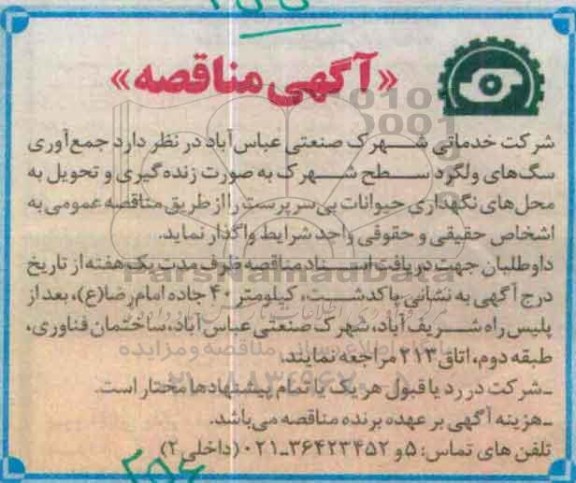 «آگهی مناقصه»
شرکت خدماتی شهرک صنعتی عباس‌آباد در نظر دارد جمع‌آوری
سگ‌های ولگرد سطح شهرک به صورت زنده‌گیری و تحویل به
محل‌های نگهداری حیوانات بی‌سرپرست را از طریق مناقصه عمومی به
اشخاص حقیقی و حقوقی واجد شرایط واگذار نماید.
داوطلبان جهت دریافت اسناد مناقصه ظرف مدت یک هفته از تاریخ
درج آگهی به نشانی پاکدشت، کیلومتر ۴۰ جاده امام رضا(ع)، بعد از
پلیس راه شریف آباد، شهرک صنعتی عباس آباد، ساختمان فناوری،
طبقه دوم، اتاق ۲۱۳ مراجعه نمایند.
ـ شرکت در رد یا قبول هر یک یا تمام پیشنهادها مختار است.
ـ هزینه آگهی بر عهده برنده مناقصه می‌باشد.
تلفن های تماس: ۵ و ۳۶۴۲۳۴۵۲ـ۰۲۱ (داخلی ۲)